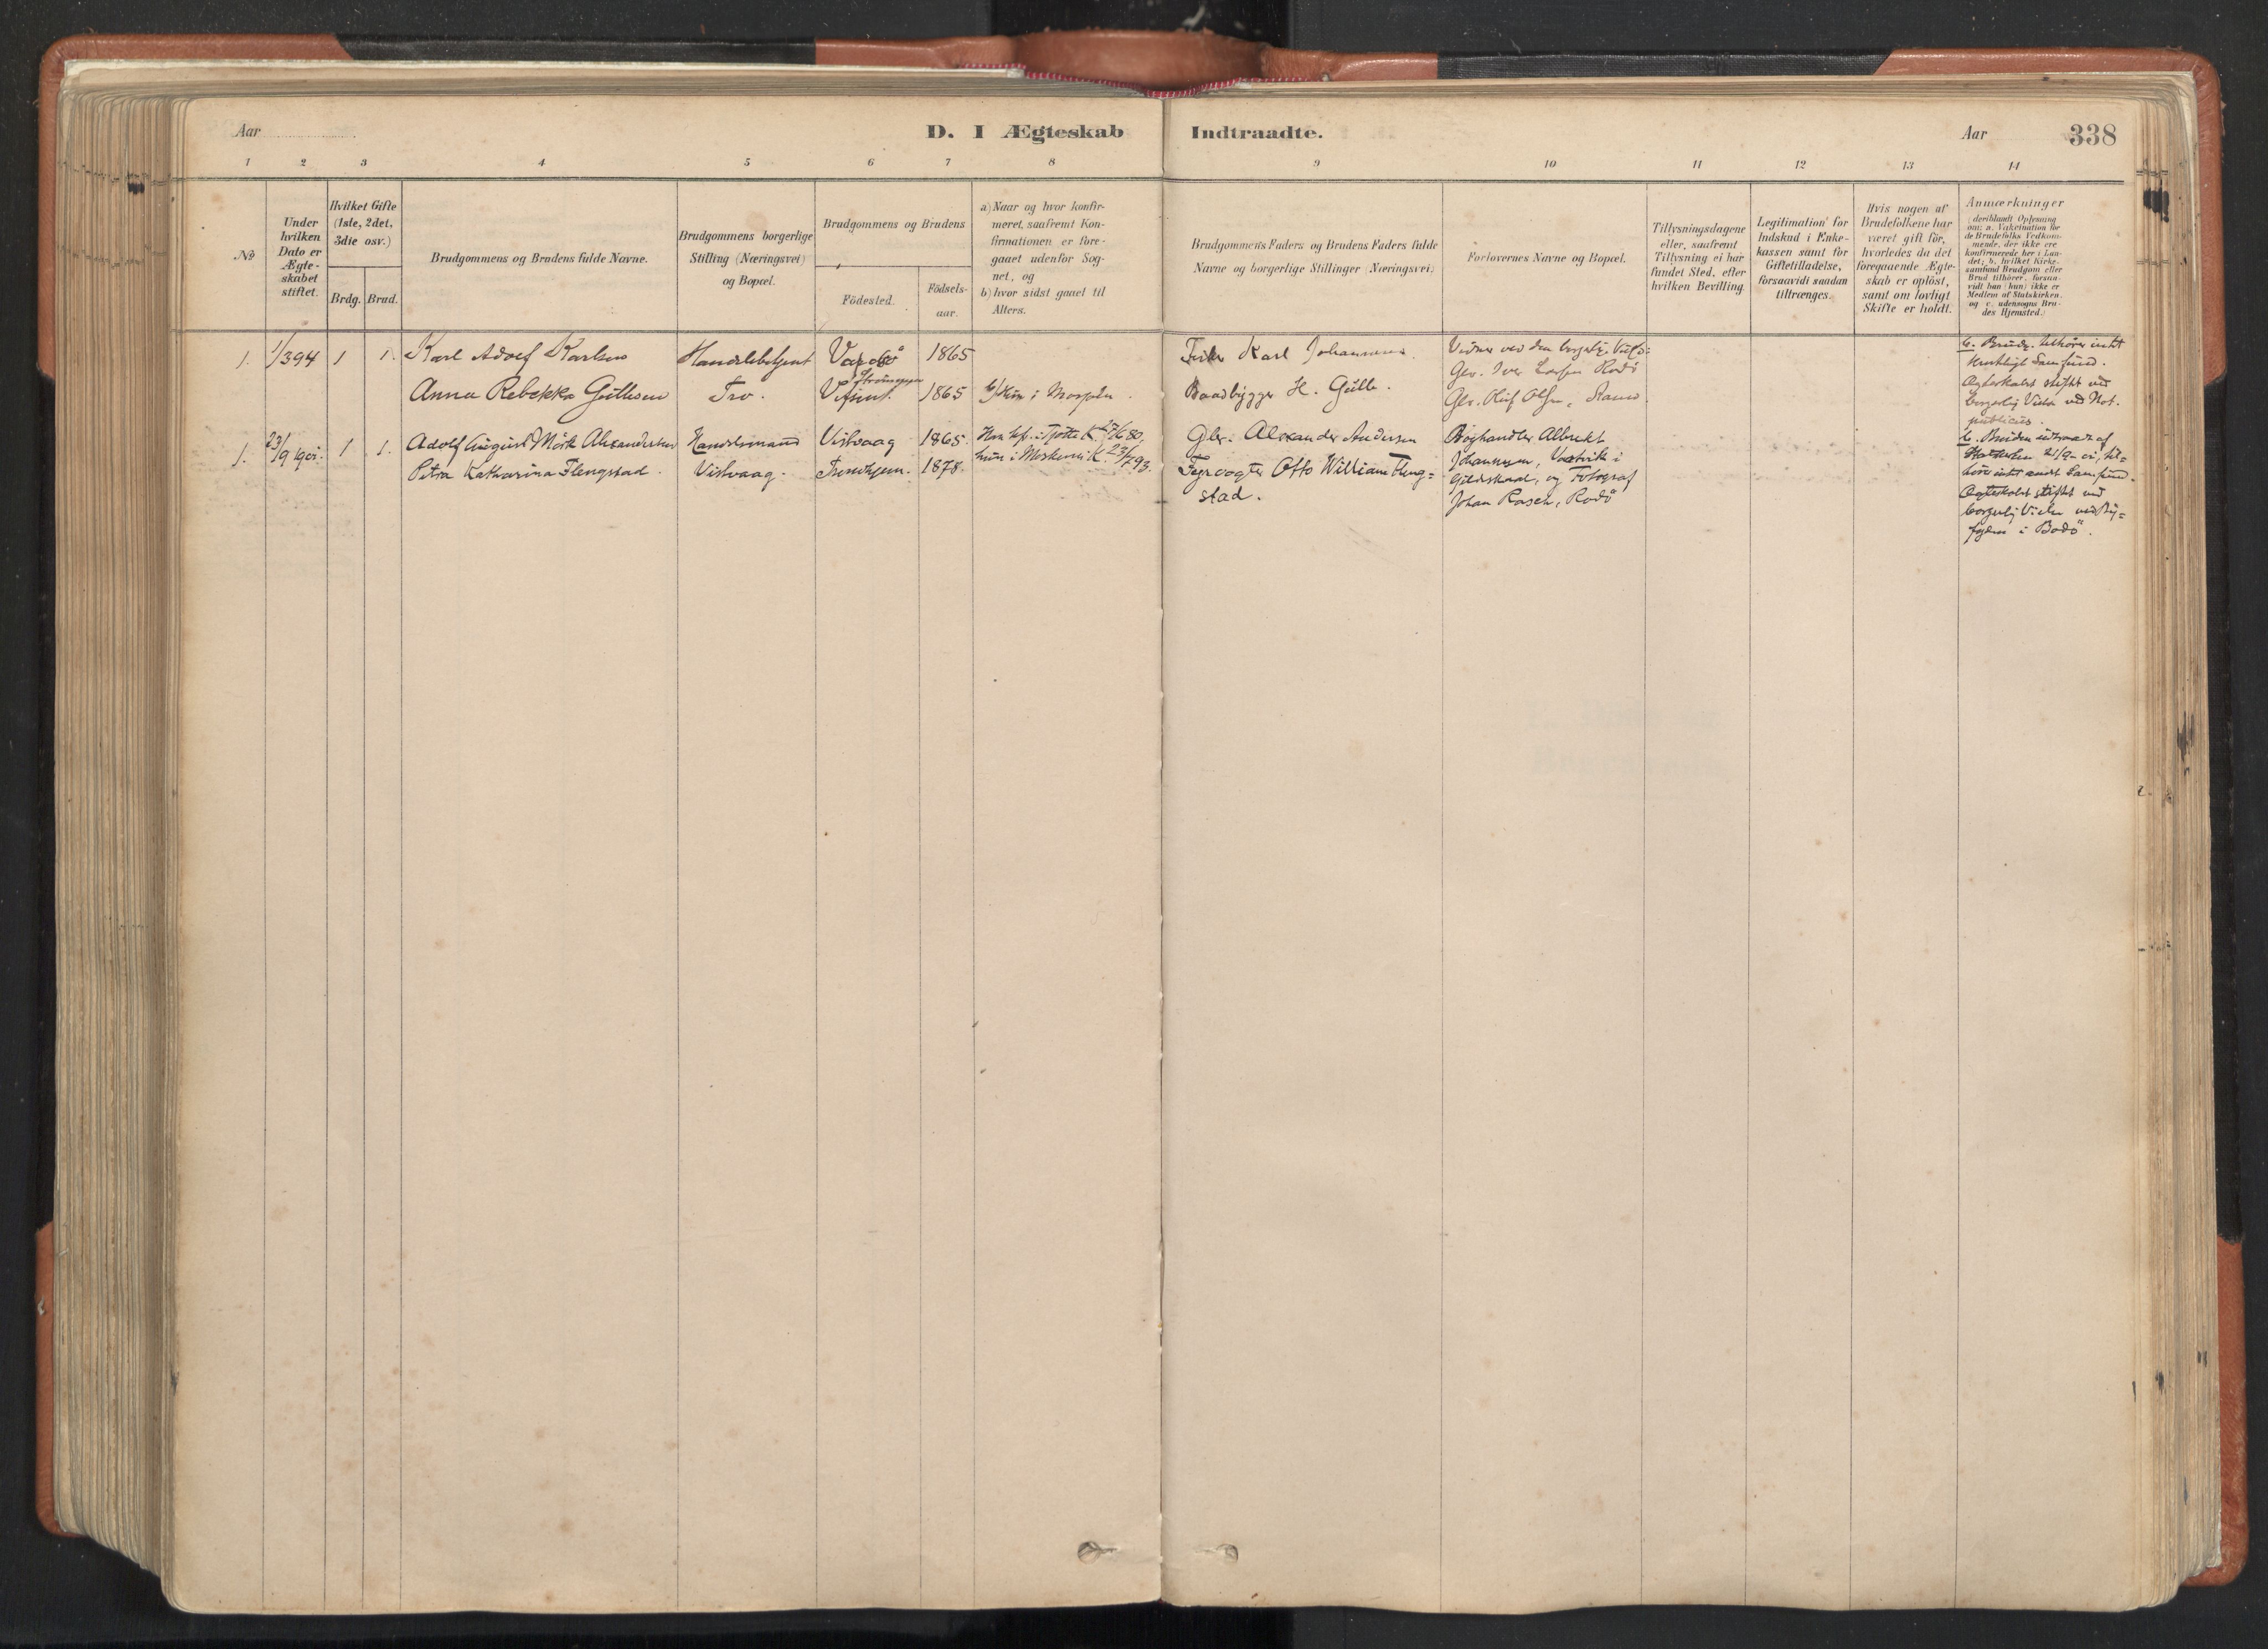 Aar
D. I Ægteskab
Indtraadte.
Aar
338
1 2 3 4 5 6 7 8 9 10 11 12 13 14
No
Under
hvilken
Dato er
Ægte-
skabet
stiftet.
Hvilket Gifte
(1ste, 2det,
3die osv.)
Brdg. Brud.
Brudgommens og Brudens fulde Navne.
Brudgommens borgerlige
Stilling (Næringsvei)
og Bopæl.
Brudgommens og Brudens
Födested.
Födsels-
aar.
a) Naar og hvor konfir-
meret, saafremt Kon-
firmationen er fore-
gaaet udenfor Sog-
net, og
b) hvor sidst gaaet til
Alters.
Brudgommens Faders og Brudens Faders fulde
Navne og borgerlige Stillinger (Næringsvei)
Forlovernes Navne og Bopæl.
Tillysningsdagene
eller, saafremt
Tillysning ei har
fundet Sted, efter
hvilken Bevilling.
Legitimation for
Indskud i Enke-
kassen samt for
Giftetilladelse,
forsaavidt saadan
tiltrænges.
Hvis nogen af
Brudefolkene har
været gift för,
hvorledes da det
foregaaende Ægte-
skab er oplöst,
samt om lovligt
Skifte er holdt.
Anmærkninger
(deriblandt Oplysning
om: a. Vakcination for
de Brudefolks Vedkom-
mende, der ikke ere
konfirmerede her i Lan-
det; b. hvilket Kirke-
samfund Brudgom eller
Brud tilhörer, forsaa-
vidt han (hun) ikke er
Medlem af Statskirken,
og c. udensogns Bru-
des Hjemsted.)
1. 1/394 1 1. Karl Adolf Karlsen Handelsbetjent 1865 Karl Johannesen.
Anna Rebekka Gullesen Tro. 1865 Baadbygger H. Gulle.
Vidner ved den borgerlige
Gbr. Iver Larsen Rodö
Gbr. Oluf Olsen,
b. Brudg. tilhører intet
kirkeligt Samfund.
Ægteskabet stiftet ved
borgerlig Vielse ved Not.
publicus.
1. 23/9 1901. 1 1. Adolf August Mörk Alexandersen Handelsmand Visvaag 1865. Han kf. i Tjøtta K. 27/6 80,
Petra Katharina Flengstad. Visvaag. Trondhjem. 1878. hun i Moskenes K. 23/7 93.
Gbr. Alexander Andersen
Fyrvogter Otto William Fleng=
stad.
Boghandler Albrekt
Johannesen,
Gildeskaal, og Fotograf
Johan Rasch, Rodö
b. Bruden udtraadt af
Statskirken 21/9 - 01, til=
hører intet andet Samfund.
Ægteskabet stiftet ved
borgerlig Vielse ved By=
fogden i Bodö.